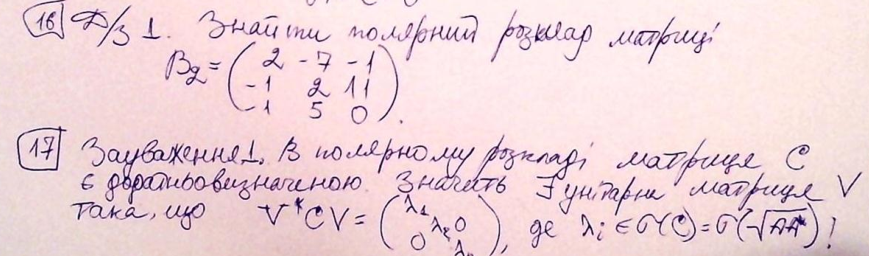 16 Д/З 1. Знайти полярний розклад матриці
B₂ = ( 2 -7 -1
-1 2 11
-1 5 0 ).
17 Зауваження 1. В полярному розкладі матриця C
є додатньовизначеною. Значить ∃ унітарна матриця V
така, що V*CV = ( λ₁ λ₂ 0
0 λₙ ), де λᵢ ∈ σ(C) = σ(√AA*)!